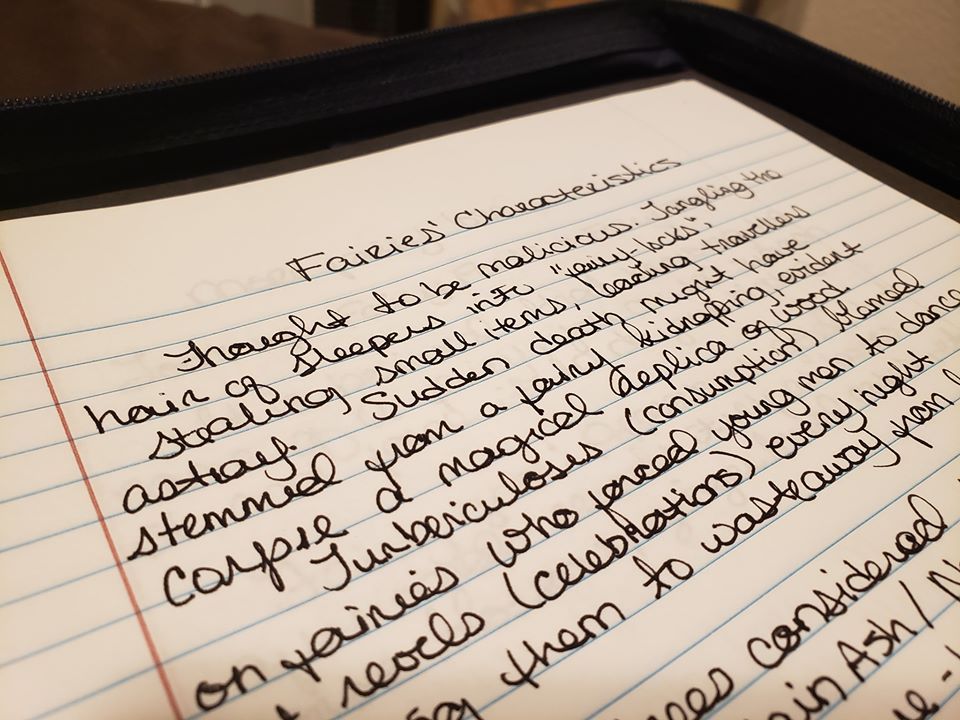 Fairies' Characteristics
Thought to be malicious. Tangling the
hair of sleepers into "fairy-locks",
stealing small items, leading travellers
astray. Sudden death might have
stemmed from a fairy kidnapping, evident
corpse a magical replica of wood.
Tunberculoses (consumption) blamed
on fairies who forced young men to dance
at revels (celebrations) every night
them to waste away from
considered
in Ash /